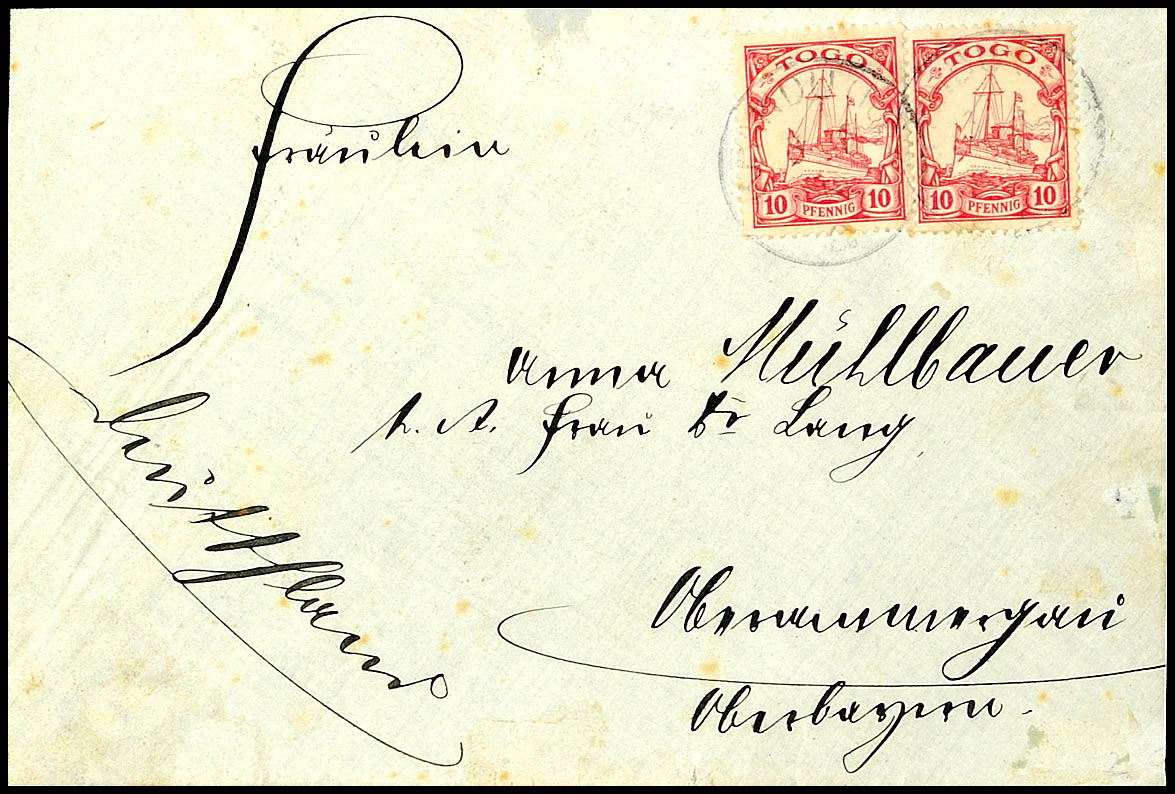 TOGO TOGO
10 PFENNIG 10 10 PFENNIG 10
Fräulein
Anna Mühlbauer
p. A. Frau Dr Lang
Deutschland
Oberammergau
Oberbayern.